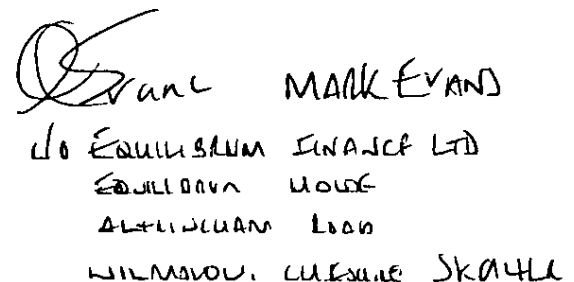 Evans MARK EVANS
c/o EQUILIBRIUM FINANCE LTD
EQUILIBRIUM HOUSE
ALTRINCHAM ROAD
WILMSLOW. CHESHIRE SK9